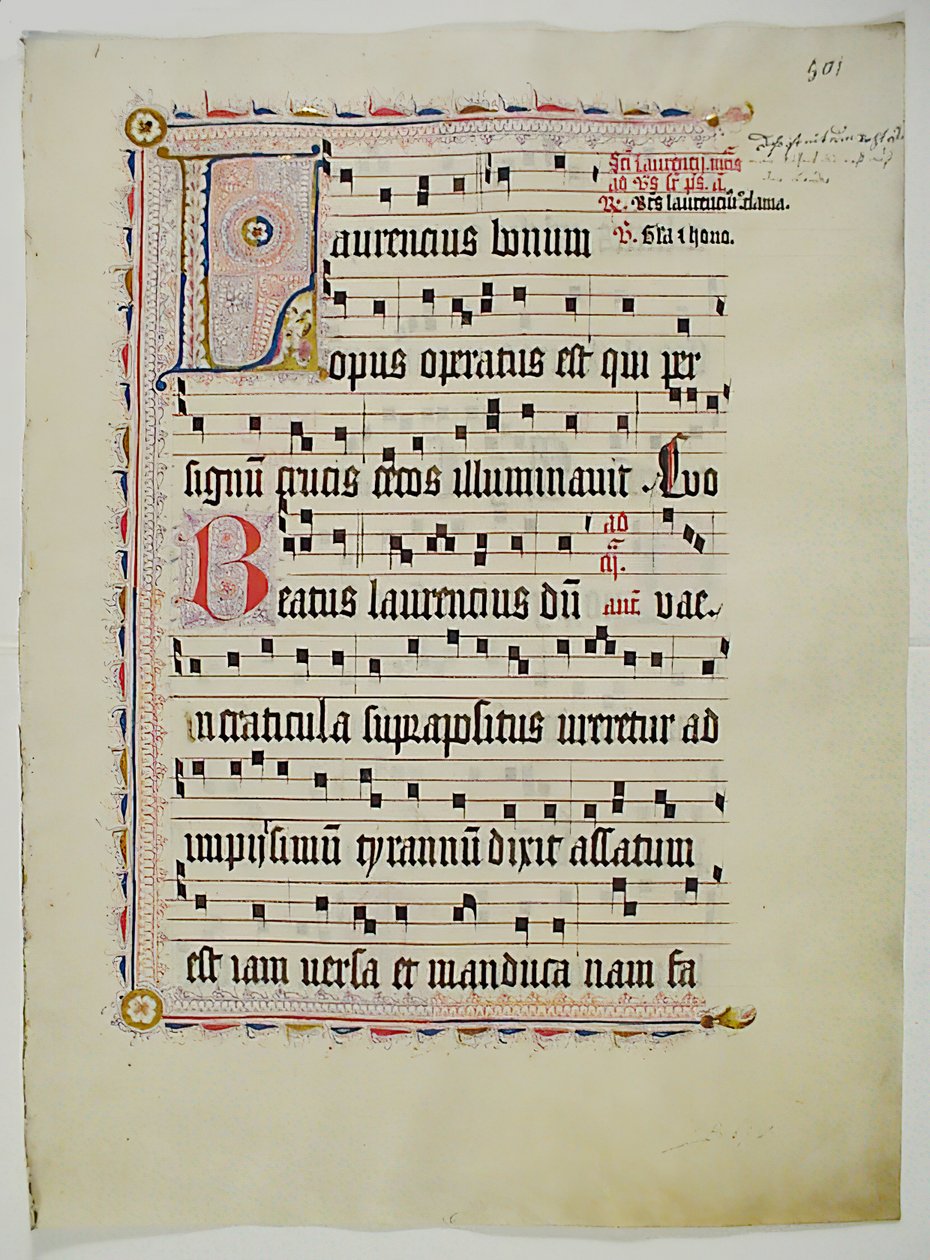 501
Sc̄i laurentij. mr̄is
ad
R. Bt̄s laurenciū clama.
V. Gl̄a ⁊ hono.
Laurencius bonum
opus operatus est qui per
signū crucis cecos illuminauit . Euo
ad
Beatus laurencius dū ant̄. vae.
in craticula suprapositus ureretur ad
impijssimū tyrannū dixit assatum
est iam uersa et manduca nam fa